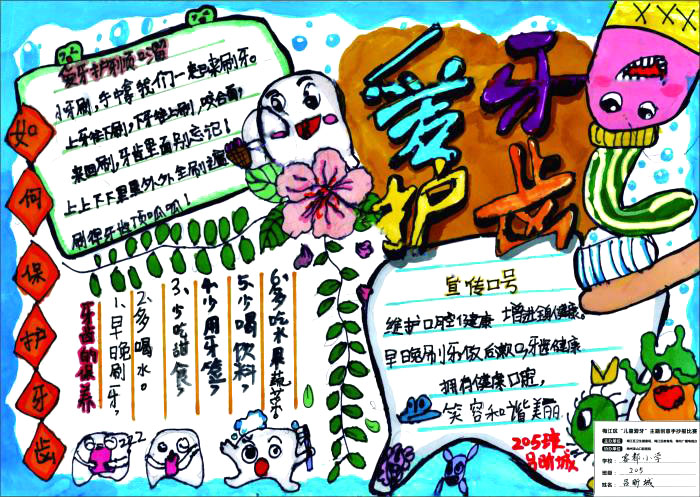 爱护牙齿
如何保护牙齿
爱牙护刷顺口溜
小牙刷，手中拿，我们一起来刷牙。
上牙往下刷，下牙往上刷，咬合面，
来回刷，牙齿里面别忘记！
上上下下里里外外全刷遍
刷得牙齿顶呱呱！
牙齿的保养
1、早日晚刷牙，
2、多喝水。
3、少吃甜食，
4、少用牙签，
5、少喝饮料，
6、多吃水果蔬菜。
宣传口号
维护口腔健康 增进健康。
早日晚刷牙饭后漱口牙齿健康
拥有健康口腔，
笑容和谐美丽
205班
吕昕城
zzz
梅江区“儿童爱牙”主题创意手抄报比赛
学校：客都小学
班级：205
姓名：吕昕城